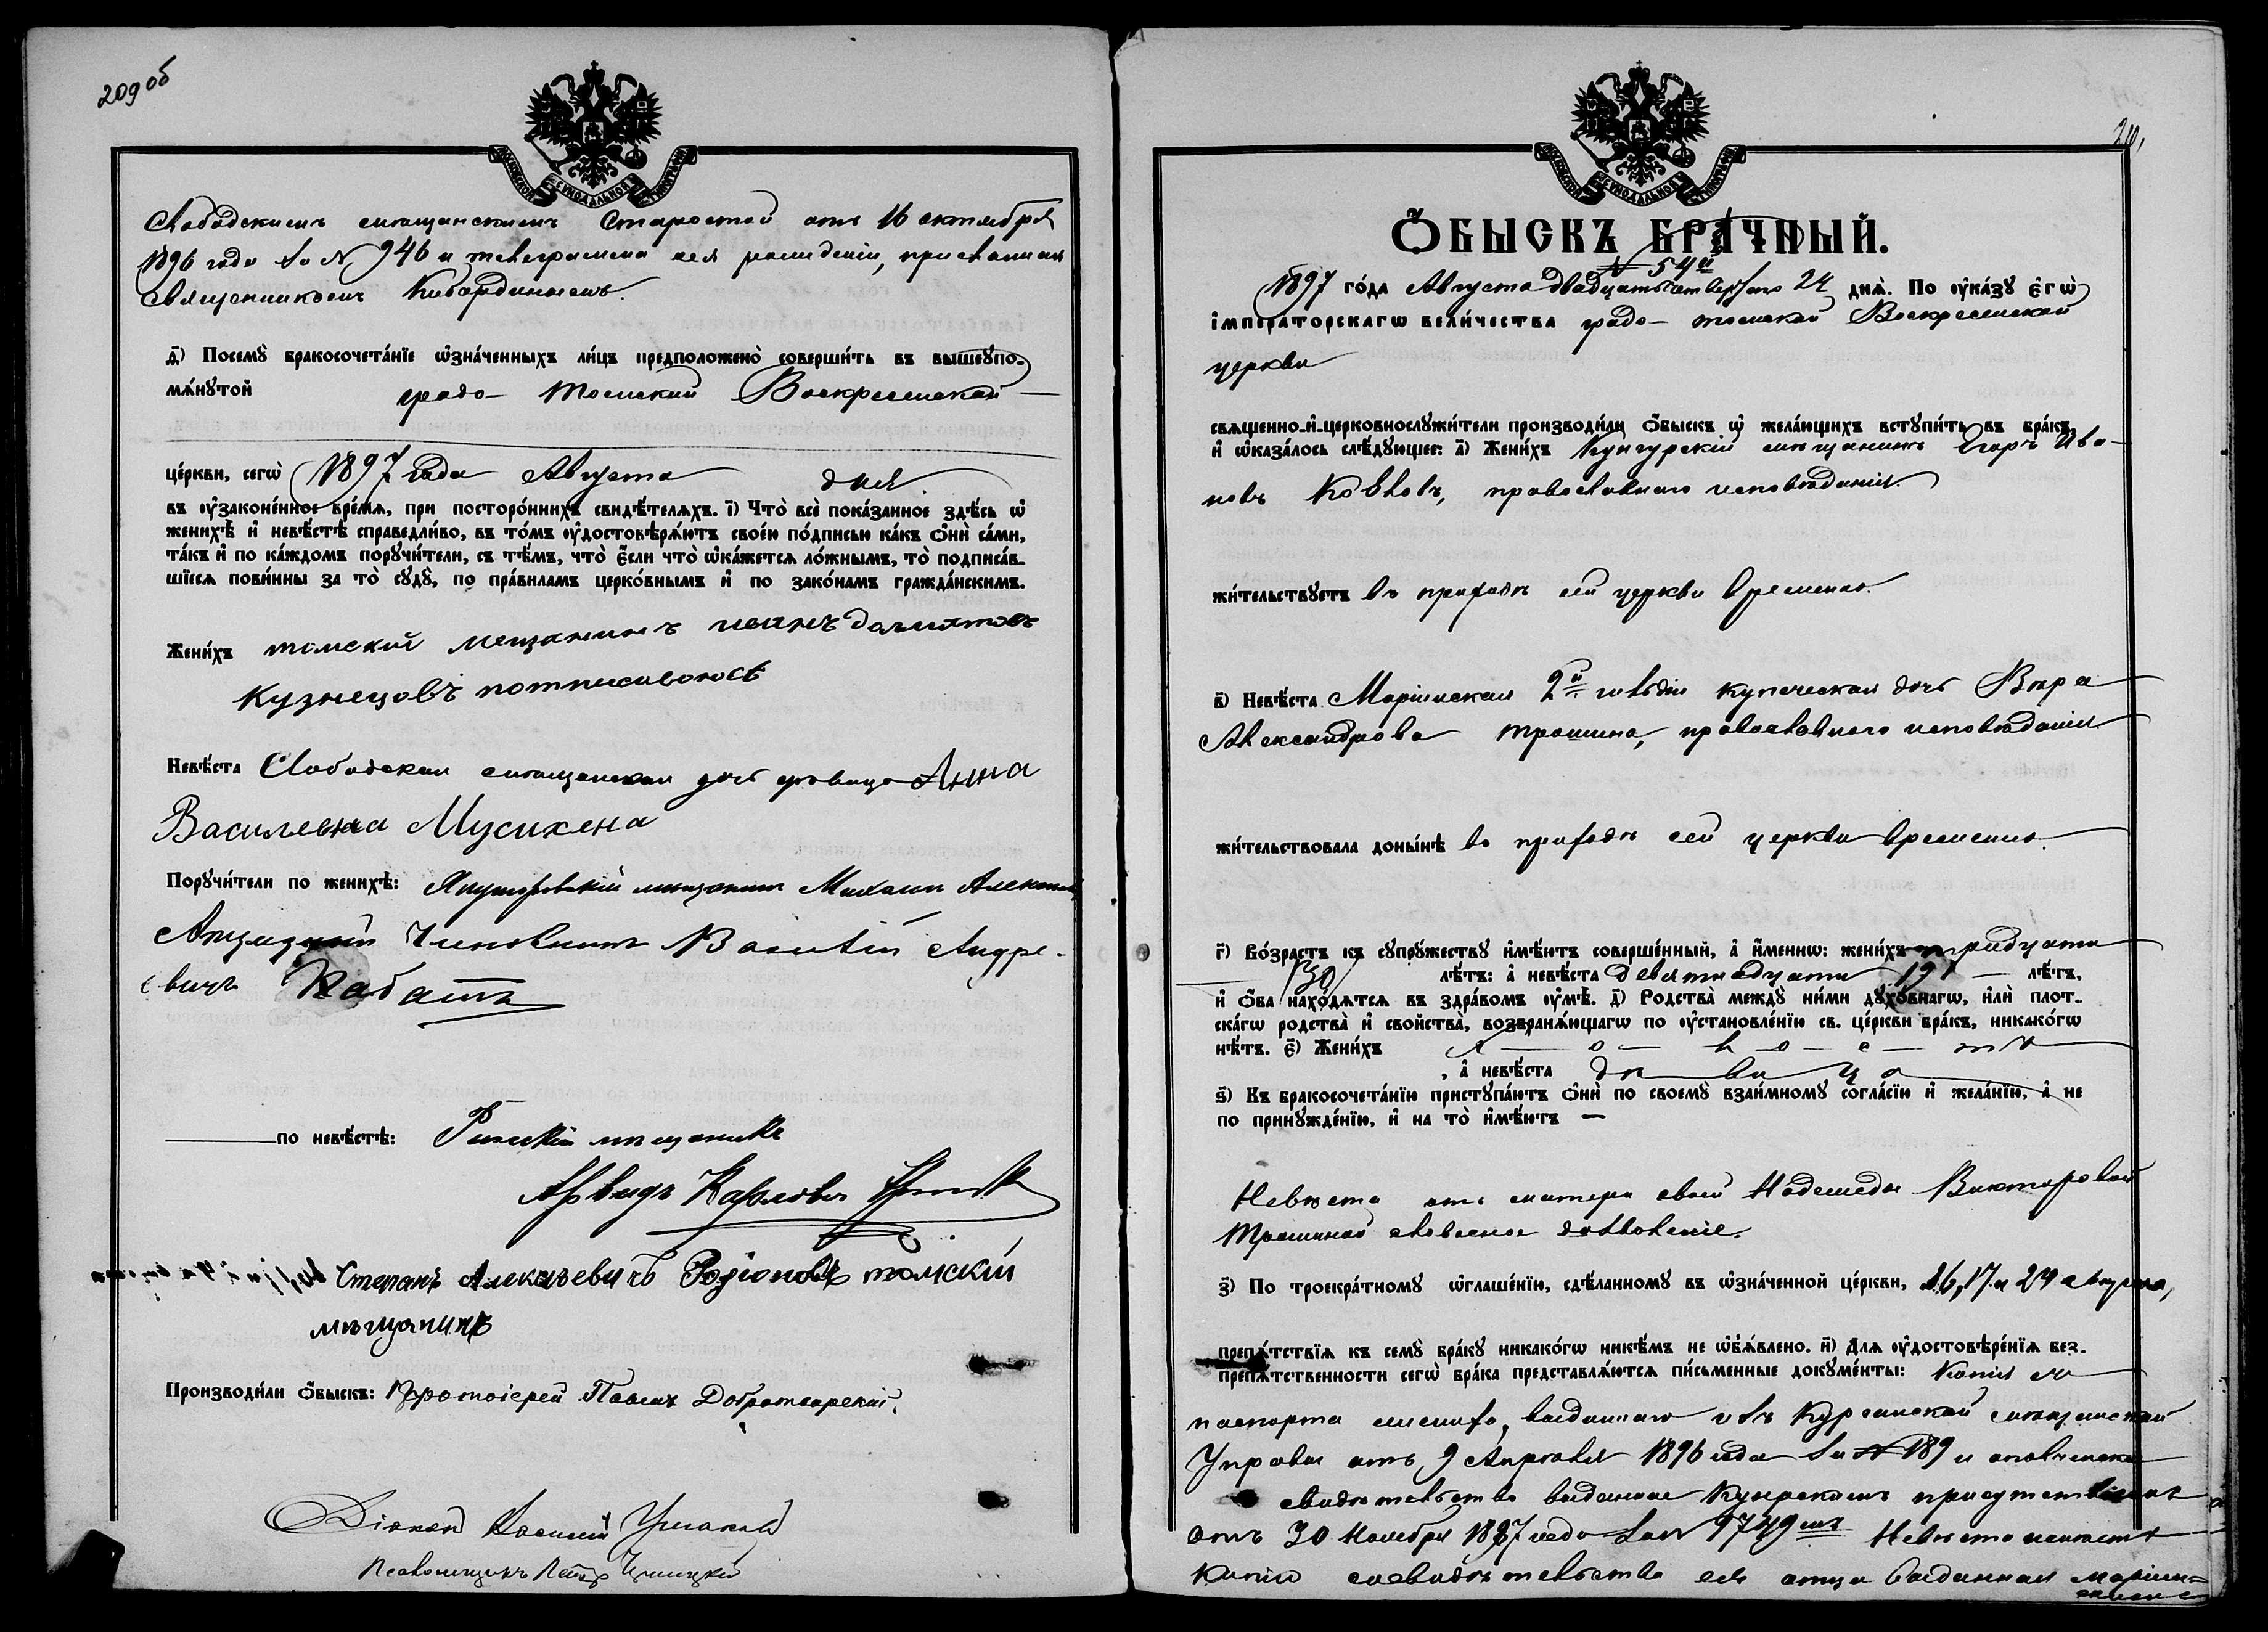 209 об
МОСКОВСКОЙ СѴНОДАЛЬНОЙ ТИПОГРАФІИ
Слободскимъ мѣщанскимъ Старостой отъ 16 октября
1896 года за № 946 и телеграмма о ея рожденіи, присланная
священникомъ Кибардинымъ.
д҃) Посемꙋ̀ бракосочета́нїе ѡ҆зна́ченныхъ ли́цъ предположено̀ соверши́ть въ вышеꙋпо-
мѧ́нꙋтой градо- Томской Воскресенской
це́ркви, сегѡ̀ 1897 года Августа дня
въ ᲂу҆законе́нное вре́мѧ, при посторо́ннихъ свидѣ́телѧхъ. і҃) Что̀ всѐ пока́занное здѣ́сь ѡ҆
женихѣ̀ и҆ невѣ́стѣ справедли́во, въ то́мъ ᲂу҆достовѣрѧ́ютъ свое́ю по́дписью ка́къ ѻ҆нѝ са́ми,
та́къ и҆ по ка́ждомъ порꙋчи́тели, съ тѣ́мъ, что̀ є҆́сли что̀ ѡ҆ка́жетсѧ ло́жнымъ, то̀ подписа́в-
шїесѧ пови́нны за то̀ сꙋдꙋ̀, по пра́виламъ церко́внымъ и҆ по зако́намъ гражда́нскимъ.
Жени́хъ томский мещанинъ иванъ долматовъ
Кузнецовъ потписовоюсь
Невѣ́ста Слободская мѣщанская дочь дѣвица Анна
Василевна Мусихена
Порꙋчи́тели по женихѣ̀: Ялуторовскій мѣщанинъ Михаилъ
Акцизный Чиновникъ Василій Андре-
евичъ Кабатъ
по невѣ́стѣ: Рижскій мѣщанинъ
Арвидъ Карловъ
Степанъ Алексѣевичъ Родіоновъ томскій
мѣщанинъ
Производи́ли ѻ҆́быскъ: Протоіерей Павелъ Добротворскій.
Діаконъ Василій Ушаковъ
Псаломщикъ Петръ
210,
МОСКОВСКОЙ СѴНОДАЛЬНОЙ ТИПОГРАФІИ
Ѻ҆́БЫСКЪ БРА́ЧНЫЙ.
№ 54й
1897 го́да Августа двадцать четвертаго 24 днѧ̀. По ᲂу҆ка́зꙋ є҆гѡ̀
і҆мпера́торскагѡ вели́чества градо- томской Воскресенской
церкви
свѧще́нно-и҆-церковнослꙋжи́тели производи́ли ѻ҆́быскъ ѡ҆ жела́ющихъ встꙋпи́ть въ бра́къ,
и҆ ѡ҆каза́лось слѣ́дꙋющее: а҃) Жени́хъ Кунгурскій мѣщанинъ Егоръ Ива-
новъ Ковловъ, православнаго исповѣданія.
жи́тельствꙋетъ въ приходѣ сей церкви временно.
в҃) Невѣ́ста Маріинская 2й гильдіи купеческая дочь Вѣра
Александрова Трошина, православнаго исповѣданія.
жи́тельствовала доны́нѣ въ приходѣ сей церкви временно.
г҃) Во́зрастъ къ сꙋпрꙋ́жествꙋ и҆мѣ́ютъ соверше́нный, а҆ и҆́меннѡ: жени́хъ тридцати
(30) лѣ́тъ: а҆ невѣ́ста девятнадцати 19 — лѣ́тъ,
и҆ ѻ҆́ба нахо́дѧтсѧ въ здра́вомъ ᲂу҆мѣ̀. д҃) Родства̀ междꙋ̀ ни́ми дꙋхо́внагѡ, и҆лѝ плот-
ска́гѡ родства̀ и҆ свойства̀, возбранѧ́ющагѡ по ᲂу҆становле́нїю св. це́ркви бра́къ, никако́гѡ
нѣ́тъ. є҃) Жени́хъ х — о — л — о — с — тъ
, а҆ невѣ́ста дѣ — ви — ца
ѕ҃) Къ бракосочета́нїю пристꙋпа́ютъ ѻ҆нѝ по своемꙋ̀ взаи́мномꙋ согла́сїю и҆ жела́нїю, а҆ не
по принꙋжде́нїю, и҆ на то̀ и҆мѣ́ютъ —
Невѣста отъ матери своей Надежды Викторовой
Трошиной словесное дозволеніе.
з҃) По троекра́тномꙋ ѡ҆глаше́нїю, сдѣ́ланномꙋ въ ѡ҆зна́ченной це́ркви, 16, 17 и 24 августа,
препѧ́тствїѧ къ семꙋ̀ бра́кꙋ никако́гѡ никѣ́мъ не ѡ҆б̾ѧ́влено. и҃) Длѧ ᲂу҆достовѣре́нїѧ без-
препѧ́тственности сегѡ̀ бра́ка представлѧ́ютсѧ пи́сьменные докꙋме́нты: Копія съ
паспорта жениха, выданнаго изъ Кургинской мѣщанской
Управы отъ 9 Апрѣля 1896 года за № 189 и
свидѣтельство выданное присутствіемъ
отъ 30 Ноября 1887 года за № 9749мъ Невѣста имѣетъ
Копію свидѣтельства ея отца выданная Маріин-
скимъ